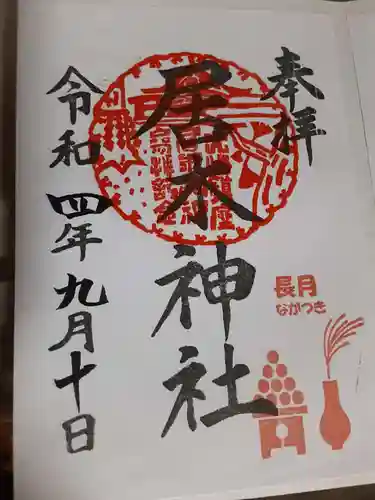 奉拝
居木神社
長月
ながつき
令和四年九月十日